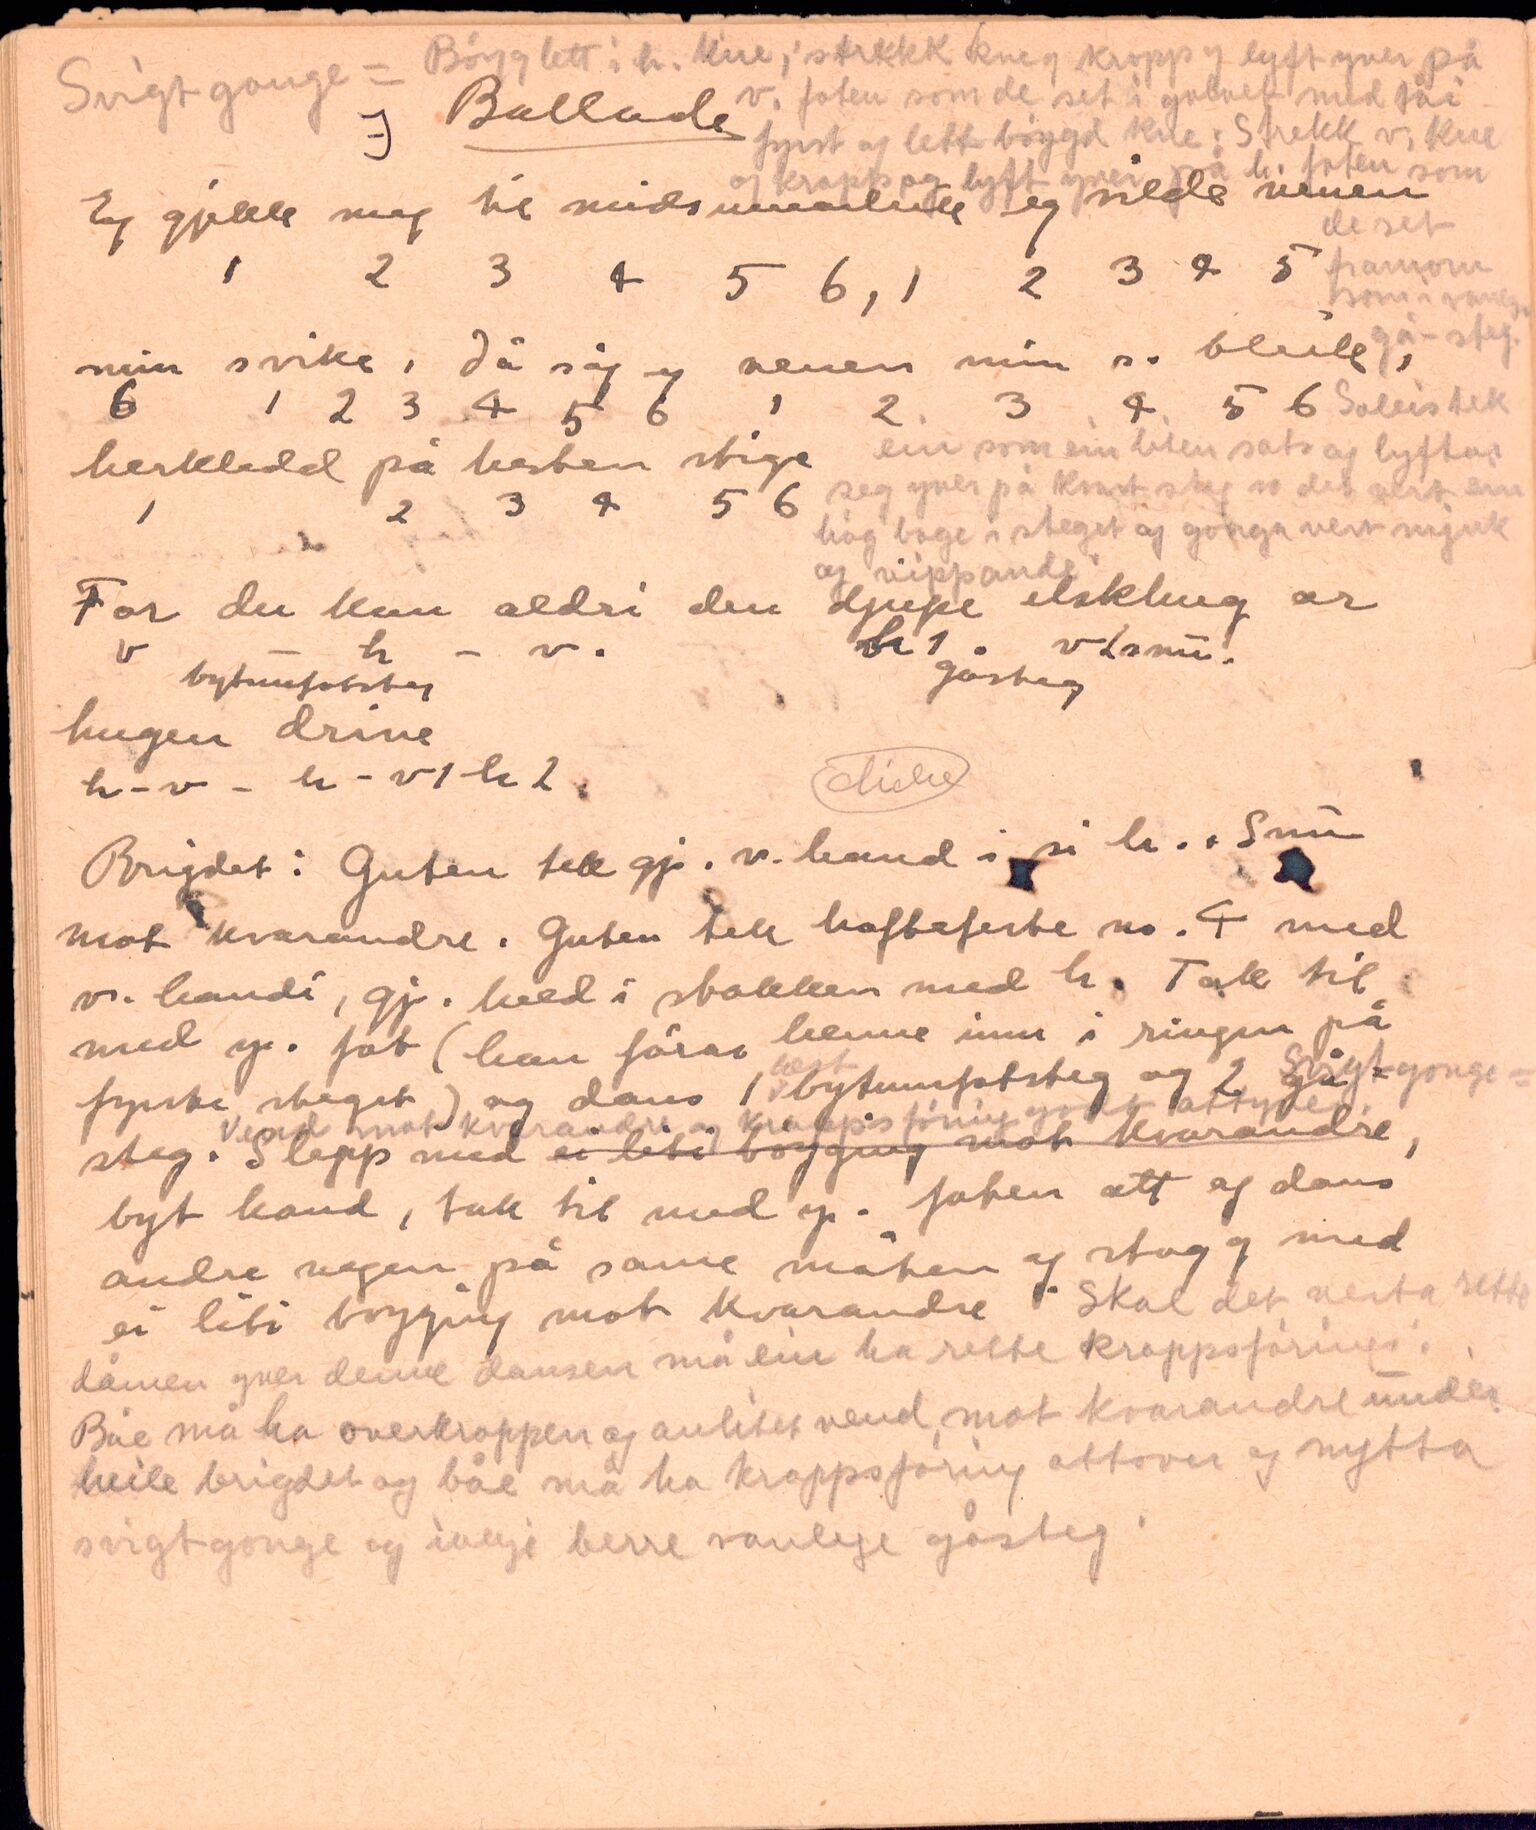 Svigtgonge = Bøyg lett i h. kne, strekk kne og kropp og lyft yver på
v. foten som de set i golvet med tåi
fyrst og lett bøygd kne: Strekk v. kne
og kropp og lyft yver på h. foten som
de set
framom
som i vanleg
gå-steg.
Soleis tek
ein som ein liten sats og lyftar
seg yver på kvart steg so det vert ein
høg boge i steget og gonga vert mjuk
og vippande.
Ballade
Eg gjekk meg til eg vilde venen
1 2 3 4 5 6, 1 2 3 4 5
min svike, då såg eg venen min so bleik,
6 1 2 3 4 5 6 1 2 3 4 5 6
herkledd på hesten stige
1 2 3 4 5 6
For du kan aldri den djupe elskhug or
v - h - v. h 1. v 2 snu.
bytumfotsteg gåsteg
hugen drive
h - v - h - v 1 h 2.
Brigdet: Guten tek gj. v. hand i si h. Snu
mot kvarandre. Guten tek hoftefeste no. 4 med
v. handi, gj. held i stakken med h. Tak til
med y. fot (han fører henne inn i ringen på
fyrste steget) og dans 1 bytumfotsteg og 2 gå-
Svigtgonge =
steg. Slepp med ei liti bøyging mot kvarandre,
Vend mot kvarandre og kroppsføring godt attyver.
byt hand, tak til med y. foten att og dans
andre vegen på same måten og stogg med
ei liti bøyging mot kvarandre. Skal det verta rette
dåmen yver denne dansen må ein ha rette kroppsføringi.
Båe må ha overkroppen og anlitet vend mot kvarandre under
heile brigdet og båe må ha kroppsføring attover og nytta
svigtgonge og ikkje berre vanlege gåsteg.